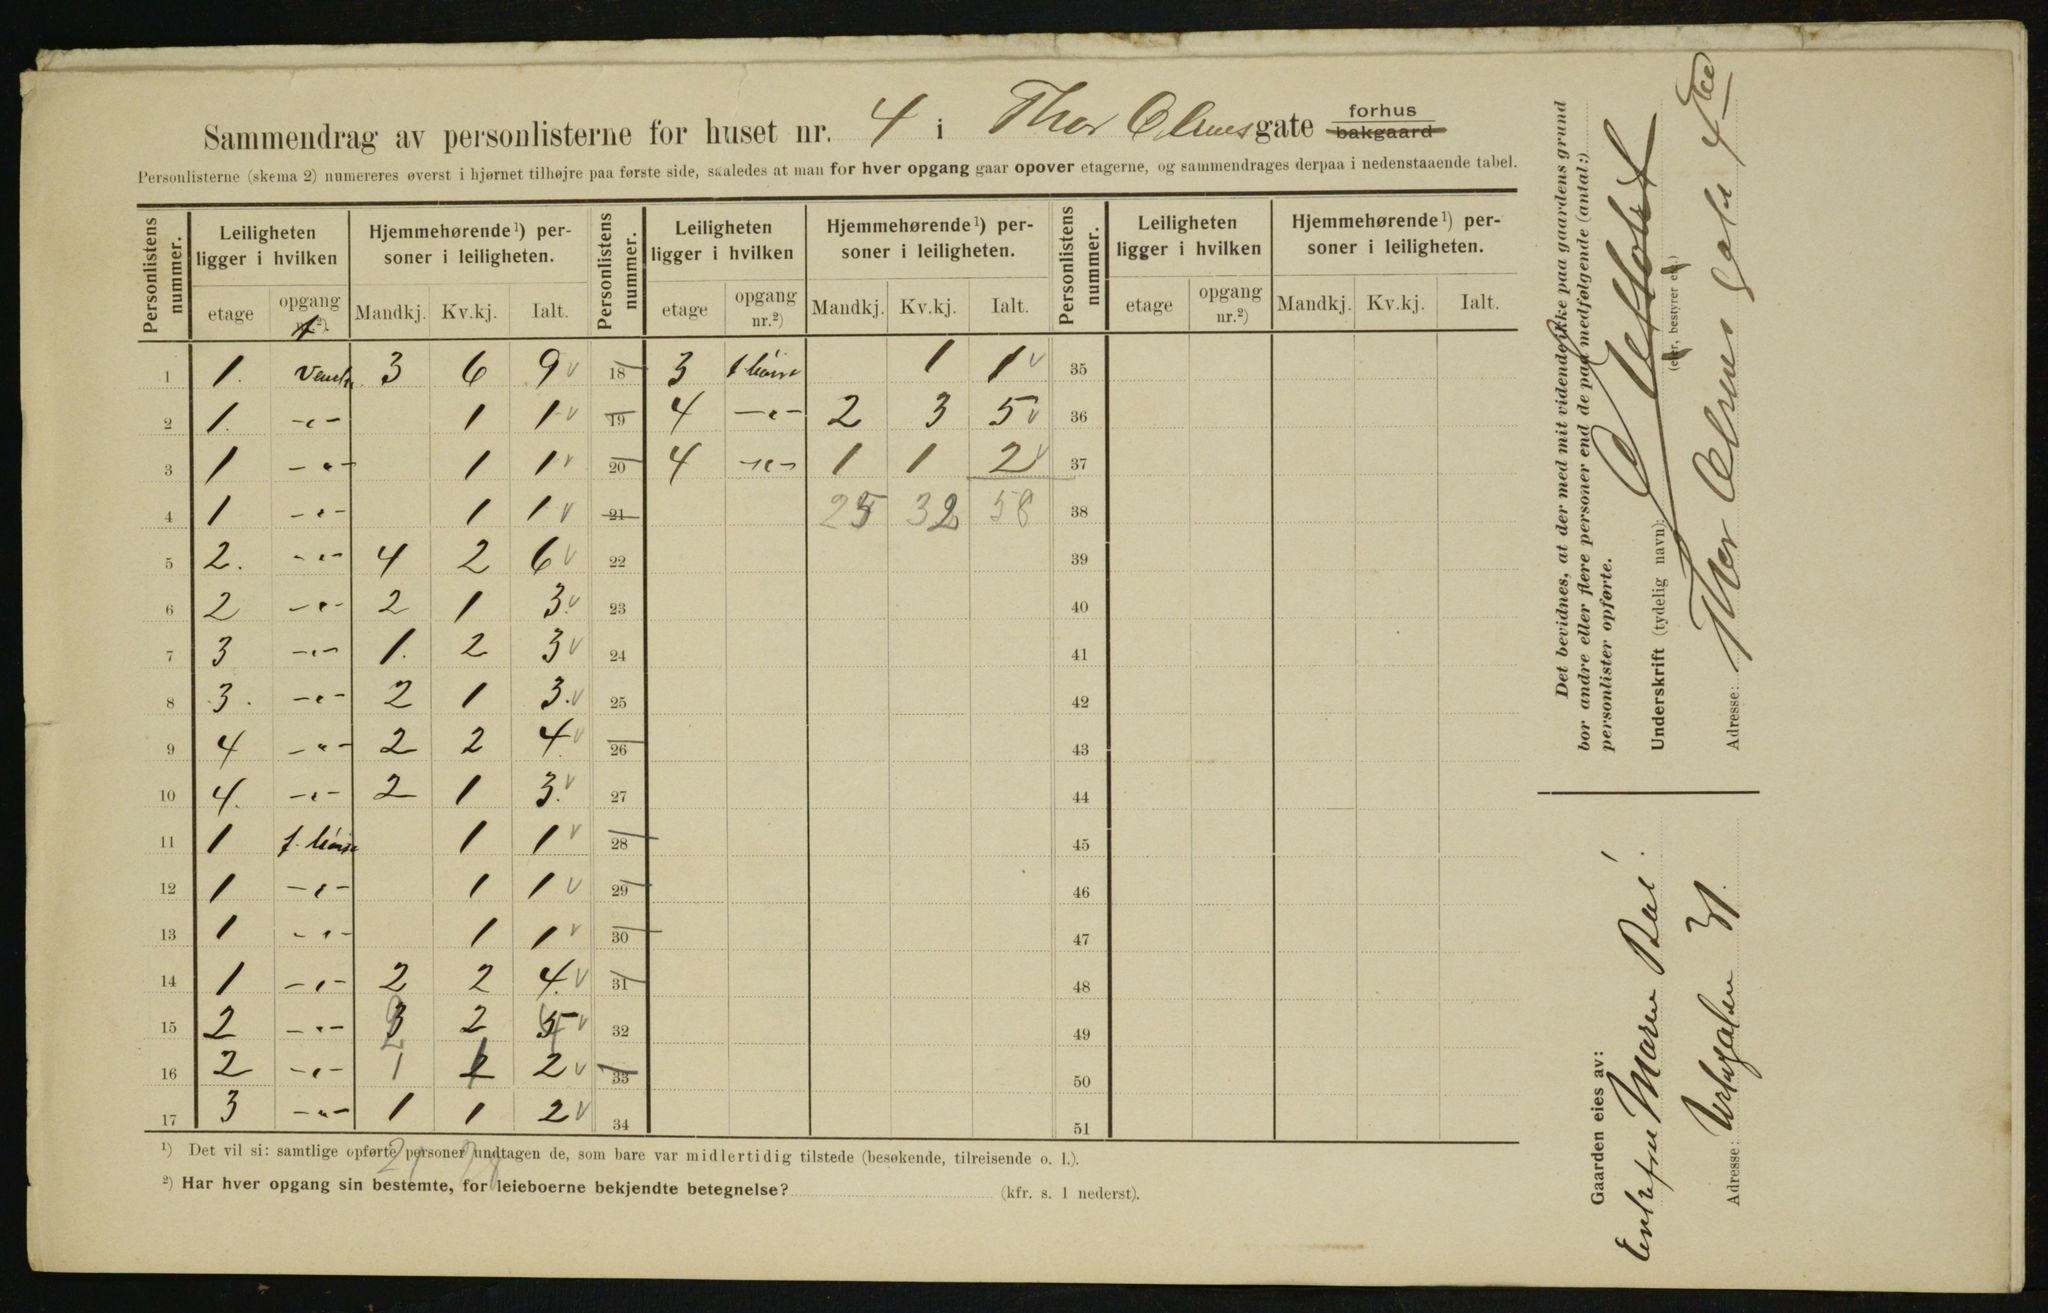 Sammendrag av personlisterne for huset nr. 4 i Thor Olsens gate forhus bakgaard
Personlisterne (skema 2) numereres øverst i hjørnet tilhøjre paa første side, saaledes at man for hver opgang gaar opover etagerne, og sammendrages derpaa i nedenstaaende tabel.
Personlistens nummer. Leiligheten ligger i hvilken Hjemmehørende¹) personer i leiligheten. Personlistens nummer. Leiligheten ligger i hvilken Hjemmehørende¹) personer i leiligheten. Personlistens nummer. Leiligheten ligger i hvilken Hjemmehørende¹) personer i leiligheten.
etage opgang nr.²) Mandkj. Kv.kj. Ialt. etage opgang nr.²) Mandkj. Kv.kj. Ialt. etage opgang nr.²) Mandkj. Kv.kj. Ialt.
1 1. 3 6 9 v 18 3 1 1 v 35
2 1. -"- 1 1 v 19 4 -"- 2 3 5 v 36
3 1 -"- 1 1 v 20 4 -"- 1 1 2 v 37
4 1 -"- 1 1 v 21 25 32 58 38
5 2. -"- 4 2 6 v 22 39
6 2 -"- 2 1 3. v 23 40
7 3 -"- 1. 2 3 v 24 41
8 3. -"- 2 1 3. v 25 42
9 4 -"- 2 2 4 v 26 43
10 4. -"- 2 1 3. v 27 44
11 1 1 1 v 28 45
12 1 -"- 1 1 v 29 46
13 1 -"- 1 1 v 30 47
14 1 -"- 2 2 4. v 31 48
15 2 -"- 3 2 2 5 4 v 32 49
16 2 -"- 1 2 1 2 v 33 50
17 3 -"- 1 1 2 v 34 51
¹) Det vil si: samtlige opførte personer undtagen de, som bare var midlertidig tilstede (besøkende, tilreisende o. l.).
21
²) Har hver opgang sin bestemte, for leieboerne bekjendte betegnelse? (kfr. s. 1 nederst).
Det bevidnes, at der med mit vidende ikke paa gaardens grund
bor andre eller flere personer end de paa medfølgende (antal:)
personlister opførte.
Underskrift (tydelig navn):
(eier, bestyrer etc.)
Adresse: Thor Olsens gate 4
Gaarden eies av:
Enkefru Maren
Adresse: 31.